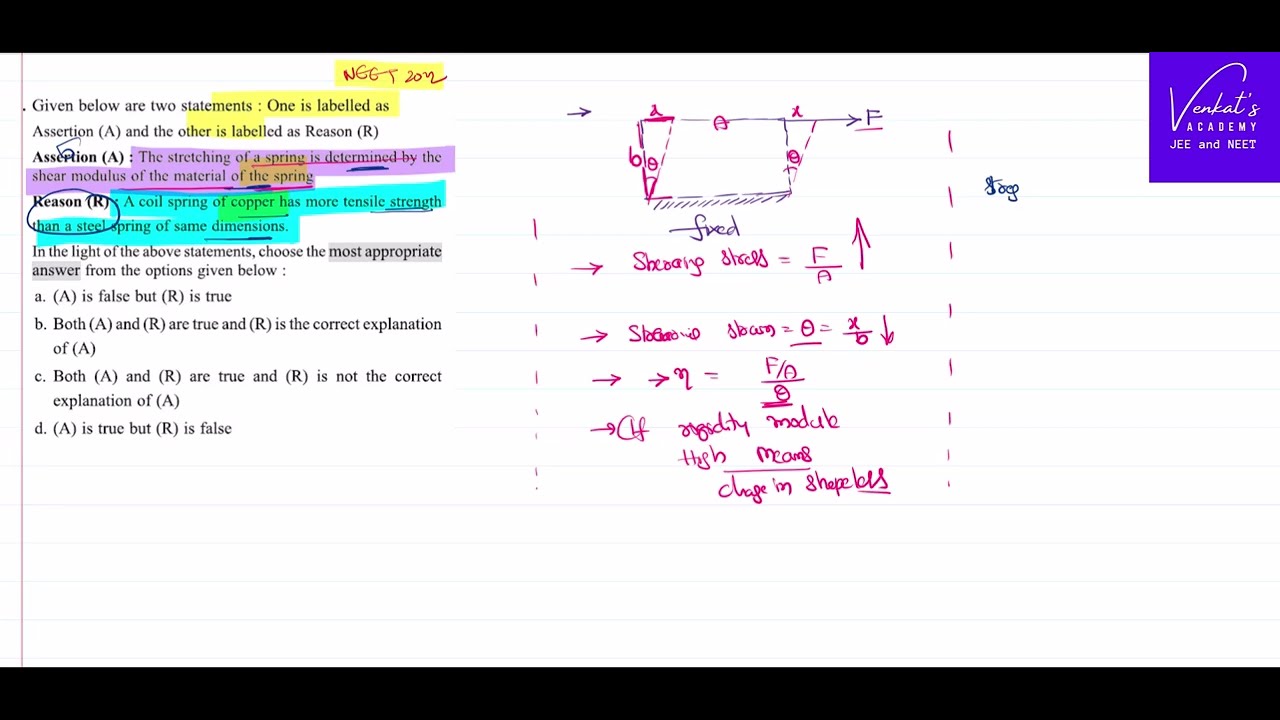 NEET 2022
. Given below are two statements : One is labelled as
Assertion (A) and the other is labelled as Reason (R)
Assertion (A) : The stretching of a spring is determined by the
shear modulus of the material of the spring
Reason (R) : A coil spring of copper has more tensile strength
than a steel spring of same dimensions.
In the light of the above statements, choose the most appropriate
answer from the options given below :
a. (A) is false but (R) is true
b. Both (A) and (R) are true and (R) is the correct explanation
of (A)
c. Both (A) and (R) are true and (R) is not the correct
explanation of (A)
d. (A) is true but (R) is false
x A x F
b θ θ
fixed
→ Shearing stress = F/A ↑
→ strain = θ = x/b ↓
→ → η = F/A / θ
→ If rigidity module
High means
chage in shape less
Venkat's
ACADEMY
JEE and NEET